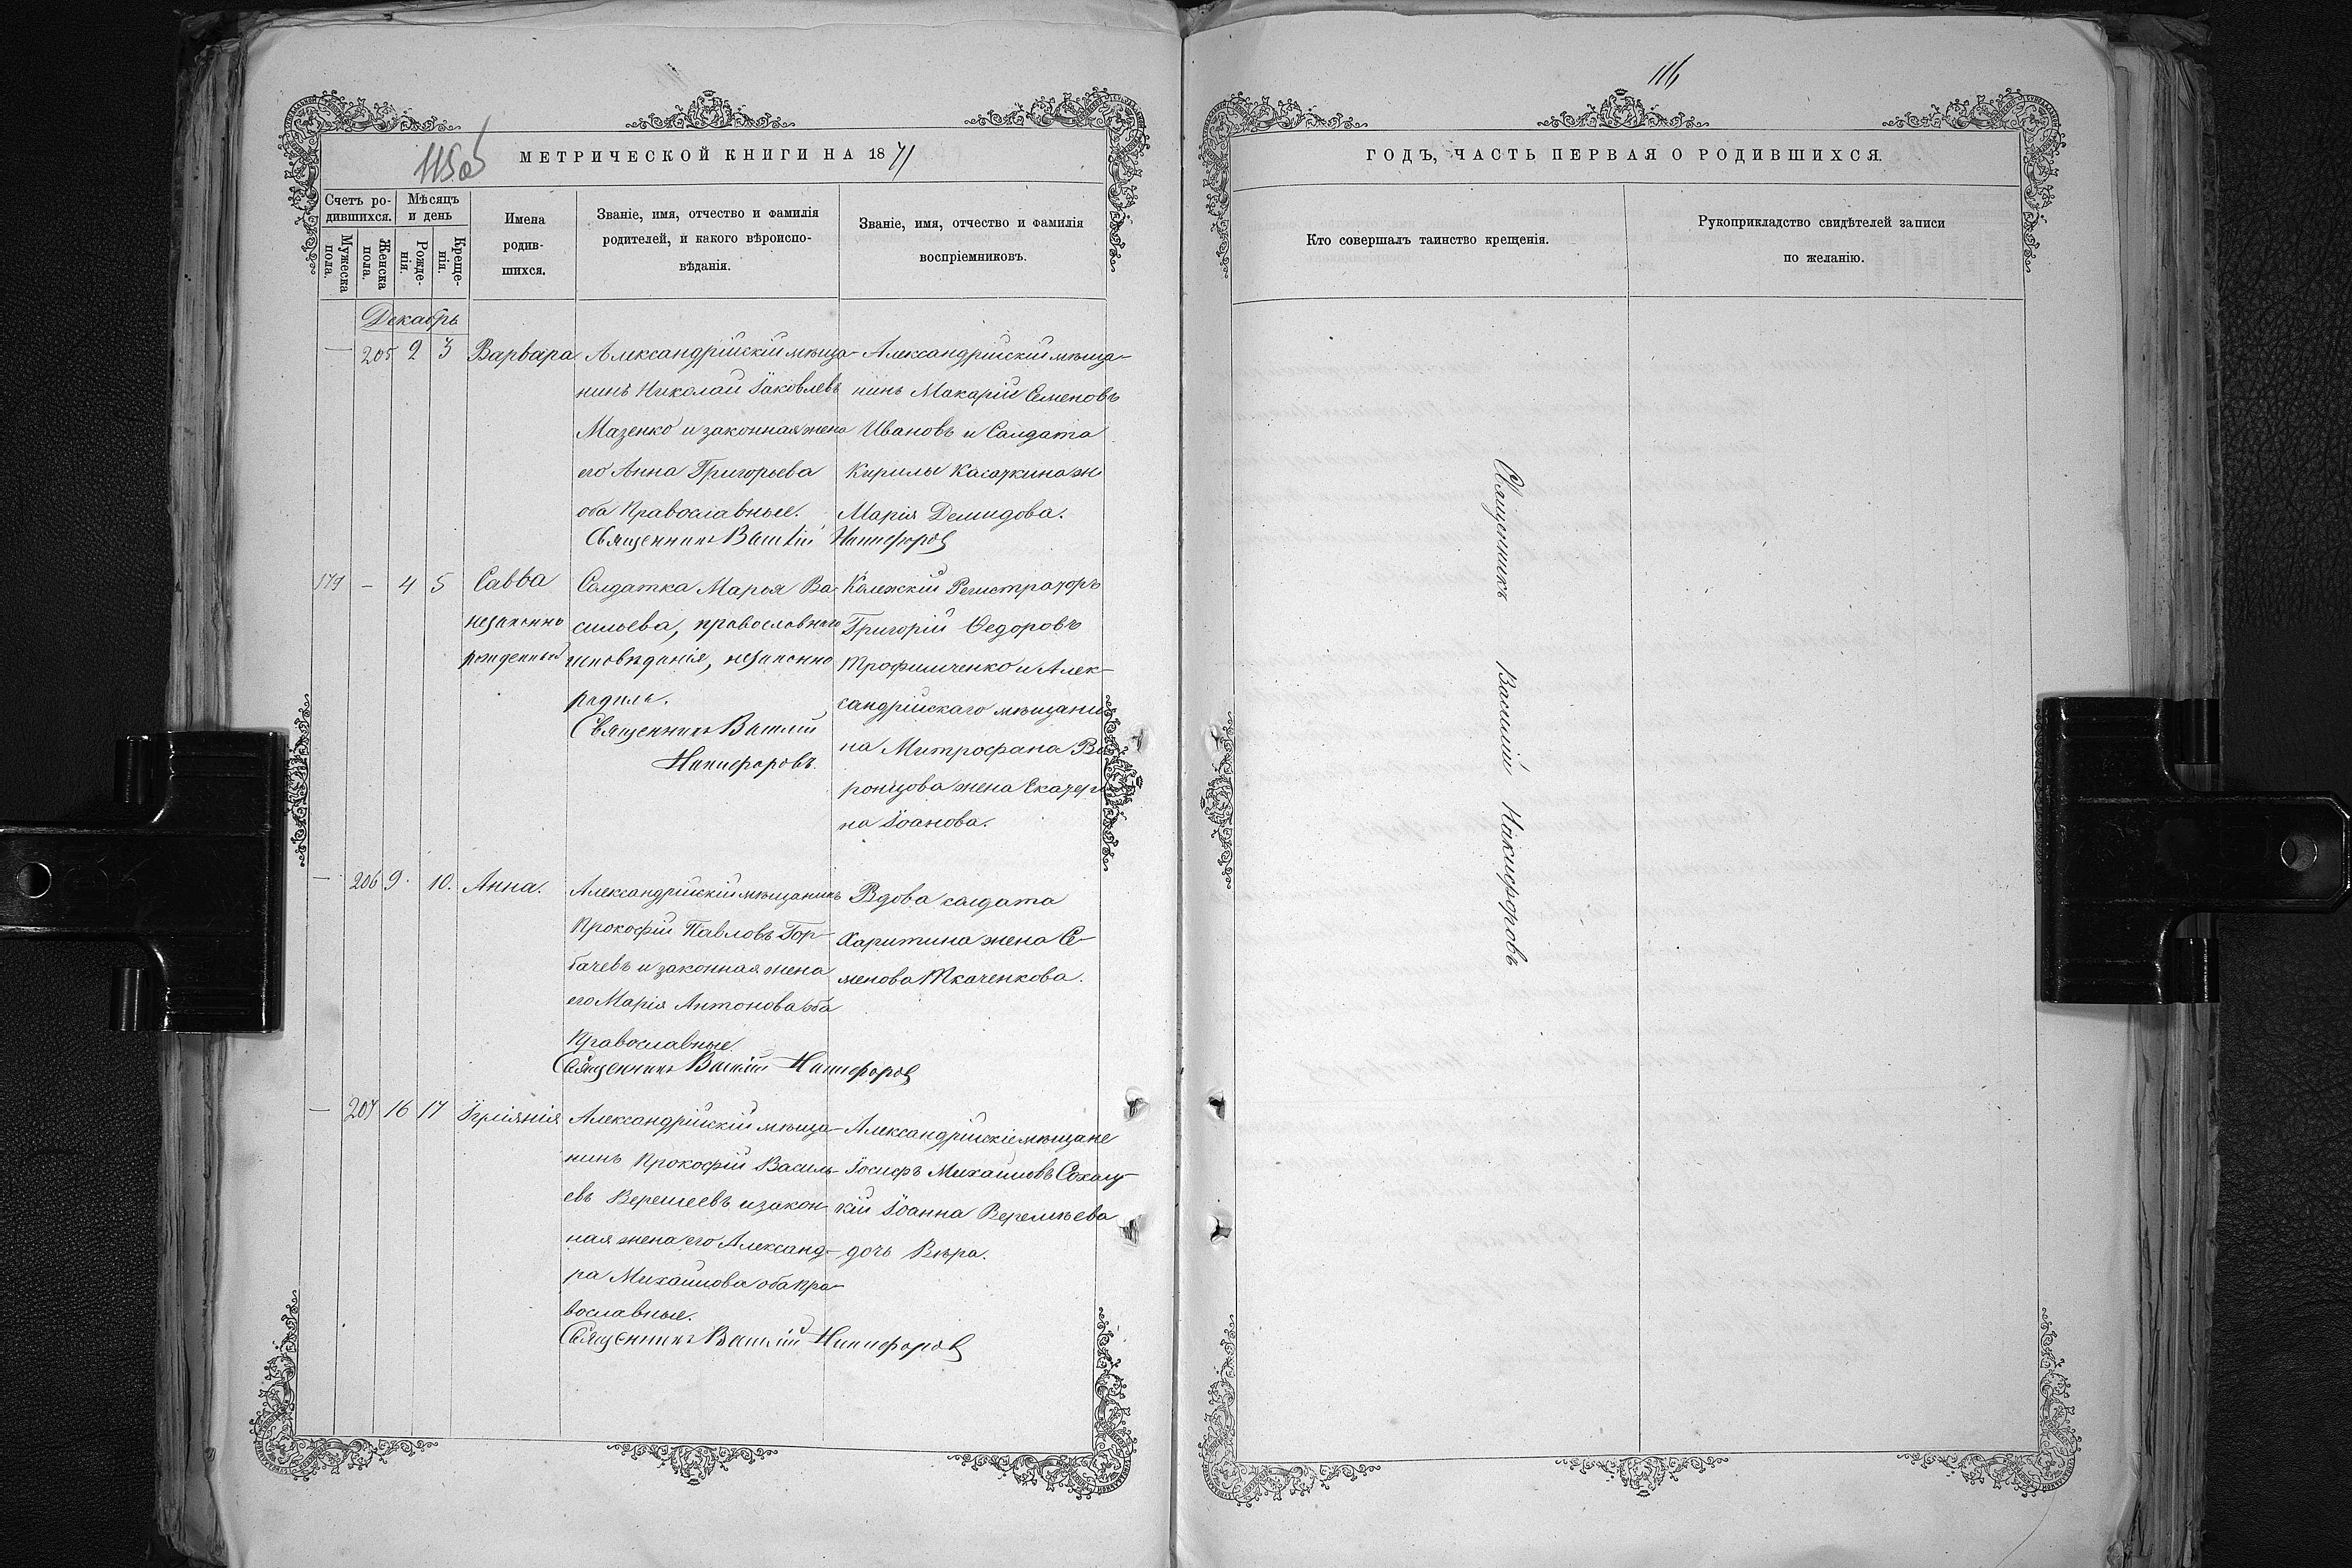 115об
МЕТРИЧЕСКОЙ КНИГИ НА 1871
Счетъ родившихся.
Мужеска пола.
Женска пола.
Мѣсяцъ и день
Рожденія.
Крещенія.
Имена родившихся.
Званіе, имя, отчество и фамилія
родителей, и какого вѣроиспо-
вѣданія.
Званіе, имя, отчество и фамилія
воспріемниковъ.
Декабрь
— 205 2 3 Варвара
Александрійскій мѣща-
нинъ Николай Іаковлевъ
Мазенко и законная жена
его Анна Григорьева
оба Православные.
Александрійскій мѣща-
нинъ Макарій Семеновъ
Ивановъ и Салдата
Кирилы Касачкина ж
Марія Демидова.
Священникъ Василій Никифоровъ
179 — 4 5 Савва
незаконно
рожденный
Солдатка Марья Ва-
сильева, православнаго
исповѣданія, незаконно
родила.
Священникъ Василій
Никифоровъ.
Колежскій Регистраторъ
Григорій Ѳедоровъ
Трофимченко и Алек-
сандрійскаго мѣщани-
на Митрофана Во-
ронцова жена Екатери-
на Іоанова.
— 206 9. 10. Анна.
Александрійскій мѣщанинъ
Прокофій Павловъ Гор-
бачевъ и законная жена
его Марія Антонова оба
Православные
Вдова салдата
Харитина жена Се-
менова Ткаченкова.
Священникъ Василій Никифоровъ
— 207 16 17 Іуліянія
Александрійскій мѣща-
нинъ Прокофій Василь-
евъ Веремеевъ и закон-
ная жена его Александ-
ра Михаилова оба пра-
вославные.
Александрійскіе мѣщане
Іосифъ Михаиловъ
кій Іоанна Веремѣева
дочь Вѣра.
Священникъ Василій Никифоровъ
116
ГОДЪ, ЧАСТЬ ПЕРВАЯ О РОДИВШИХСЯ.
Кто совершалъ таинство крещенія.
Рукоприкладство свидѣтелей записи
по желанію.
Священникъ Василій Никифоровъ